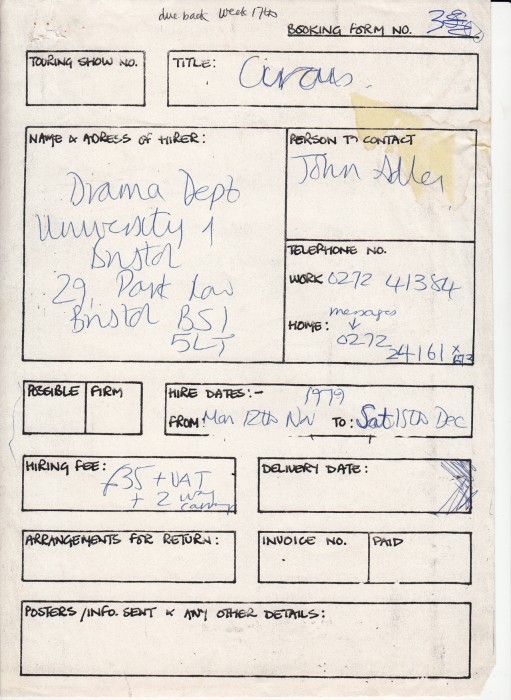 due back week 17th
BOOKING FORM NO.
TOURING SHOW NO.
TITLE: Circus.
NAME & ADRESS OF HIRER:
Drama Dept
University of
Bristol
29, Park Row
Bristol BS1
5LT
PERSON TO CONTACT
John Adler
TELEPHONE NO.
WORK 0272 41384
messages
HOME: ↓
0272
24161 x
673
POSSIBLE FIRM
HIRE DATES:- 1979
FROM: Mon 12th Nov TO: Sat 15th Dec
HIRING FEE:
£35 + VAT
+ 2 way
carriage
DELIVERY DATE:
ARRANGEMENTS FOR RETURN:
INVOICE NO. PAID
POSTERS/INFO. SENT & ANY OTHER DETAILS: